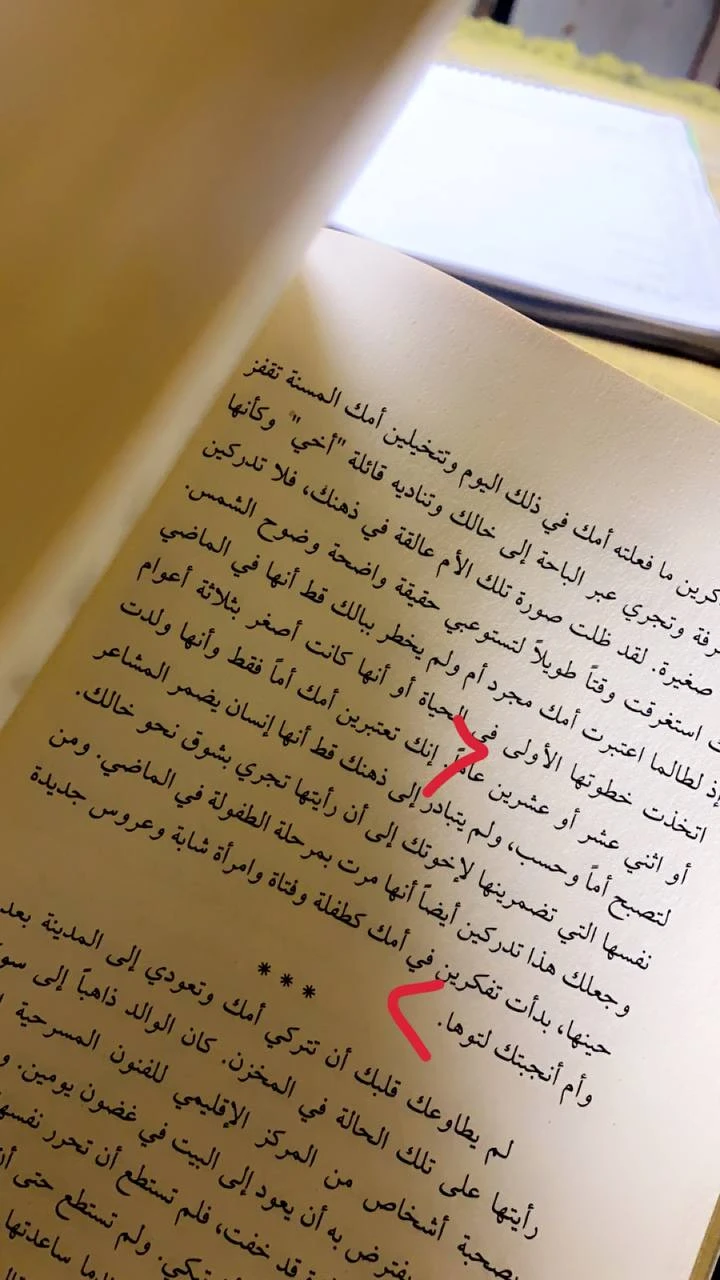 ما فعلته أمك في ذلك اليوم وتتخيلين أمك المسنة تقفز
وتجري عبر الباحة إلى خالك وتناديه قائلة "أخي" وكأنها
صغيرة. لقد ظلت صورة تلك الأم عالقة في ذهنك، فلا تدركين
استغرقت وقتاً طويلاً لتستوعبي حقيقة واضحة وضوح الشمس.
إذ لطالما اعتبرت أمك مجرد أم ولم يخطر ببالك قط أنها في الماضي
اتخذت خطوتها الأولى في الحياة أو أنها كانت أصغر بثلاثة أعوام
أو اثني عشر أو عشرين عاماً. إنك تعتبرين أمك أماً فقط وأنها ولدت
لتصبح أماً وحسب، ولم يتبادر إلى ذهنك قط أنها إنسان يضمر المشاعر
نفسها التي تضمرينها لإخوتك إلى أن رأيتها تجري بشوق نحو خالك.
وجعلك هذا تدركين أيضاً أنها مرت بمرحلة الطفولة في الماضي. ومن
حينها، بدأت تفكرين في أمك كطفلة وفتاة وامرأة شابة وعروس جديدة
وأم أنجبتك لتوها.
* * *
لم يطاوعك قلبك أن تتركي أمك وتعودي إلى المدينة بعد
رأيتها على تلك الحالة في المخزن. كان الوالد ذاهباً إلى
بصحبة أشخاص من المركز الإقليمي للفنون المسرحية
يفترض به أن يعود إلى البيت في غضون يومين.
قد خفت، فلم تستطع أن تحرر
تبكي. ولم تستطع حتى
ساعدتها